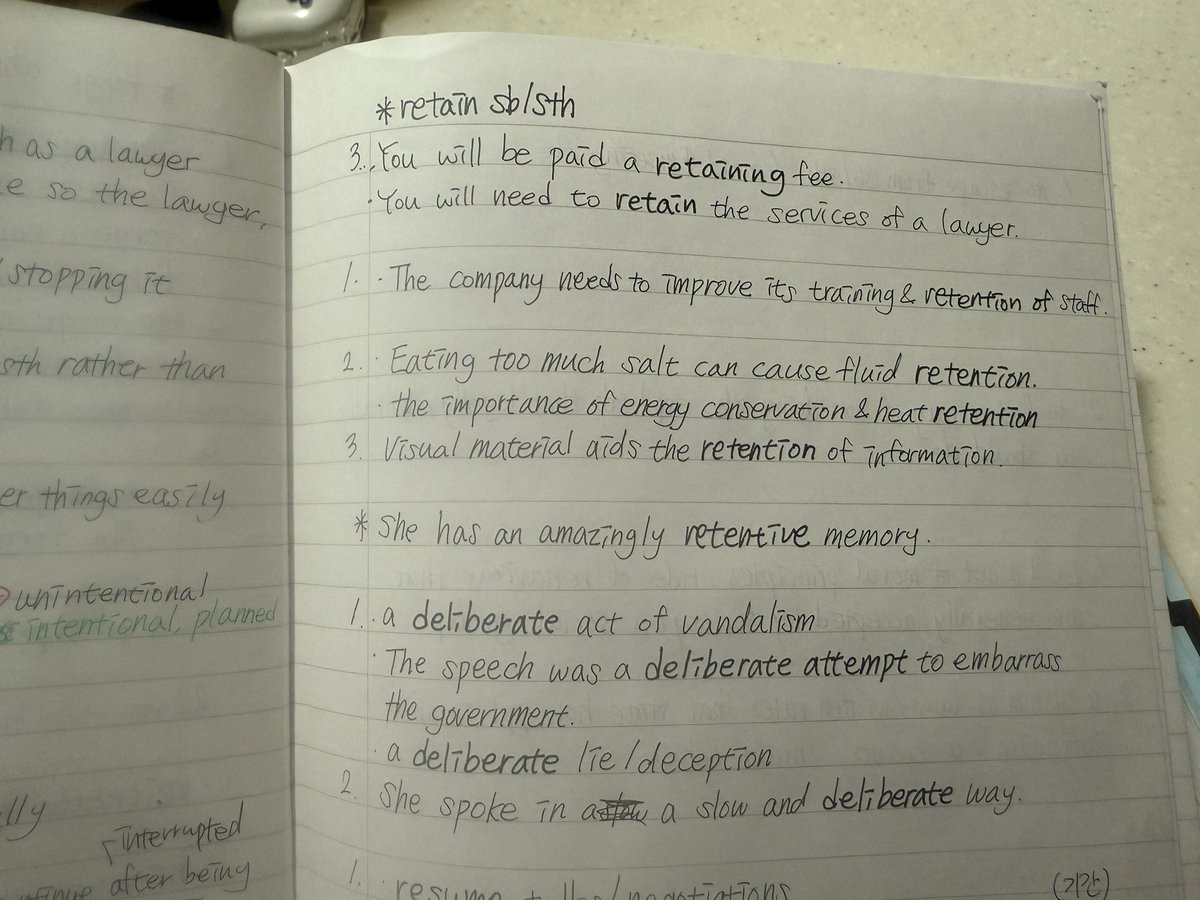 h as a lawyer
e so the lawyer,
/stopping it
sth rather than
er things easily
unintentional
intentional, planned
lly
interrupted
after being
*retain sb/sth
3. · You will be paid a retaining fee.
· You will need to retain the services of a lawyer.
1. · The company needs to improve its training & retention of staff.
2. · Eating too much salt can cause fluid retention.
· the importance of energy conservation & heat retention
3. Visual material aids the retention of information.
* She has an amazingly retentive memory.
1. · a deliberate act of vandalism
· The speech was a deliberate attempt to embarrass
the government.
· a deliberate lie/deception
2. She spoke in a slow and deliberate way.
1. · resume talks/negotiations
(기간)